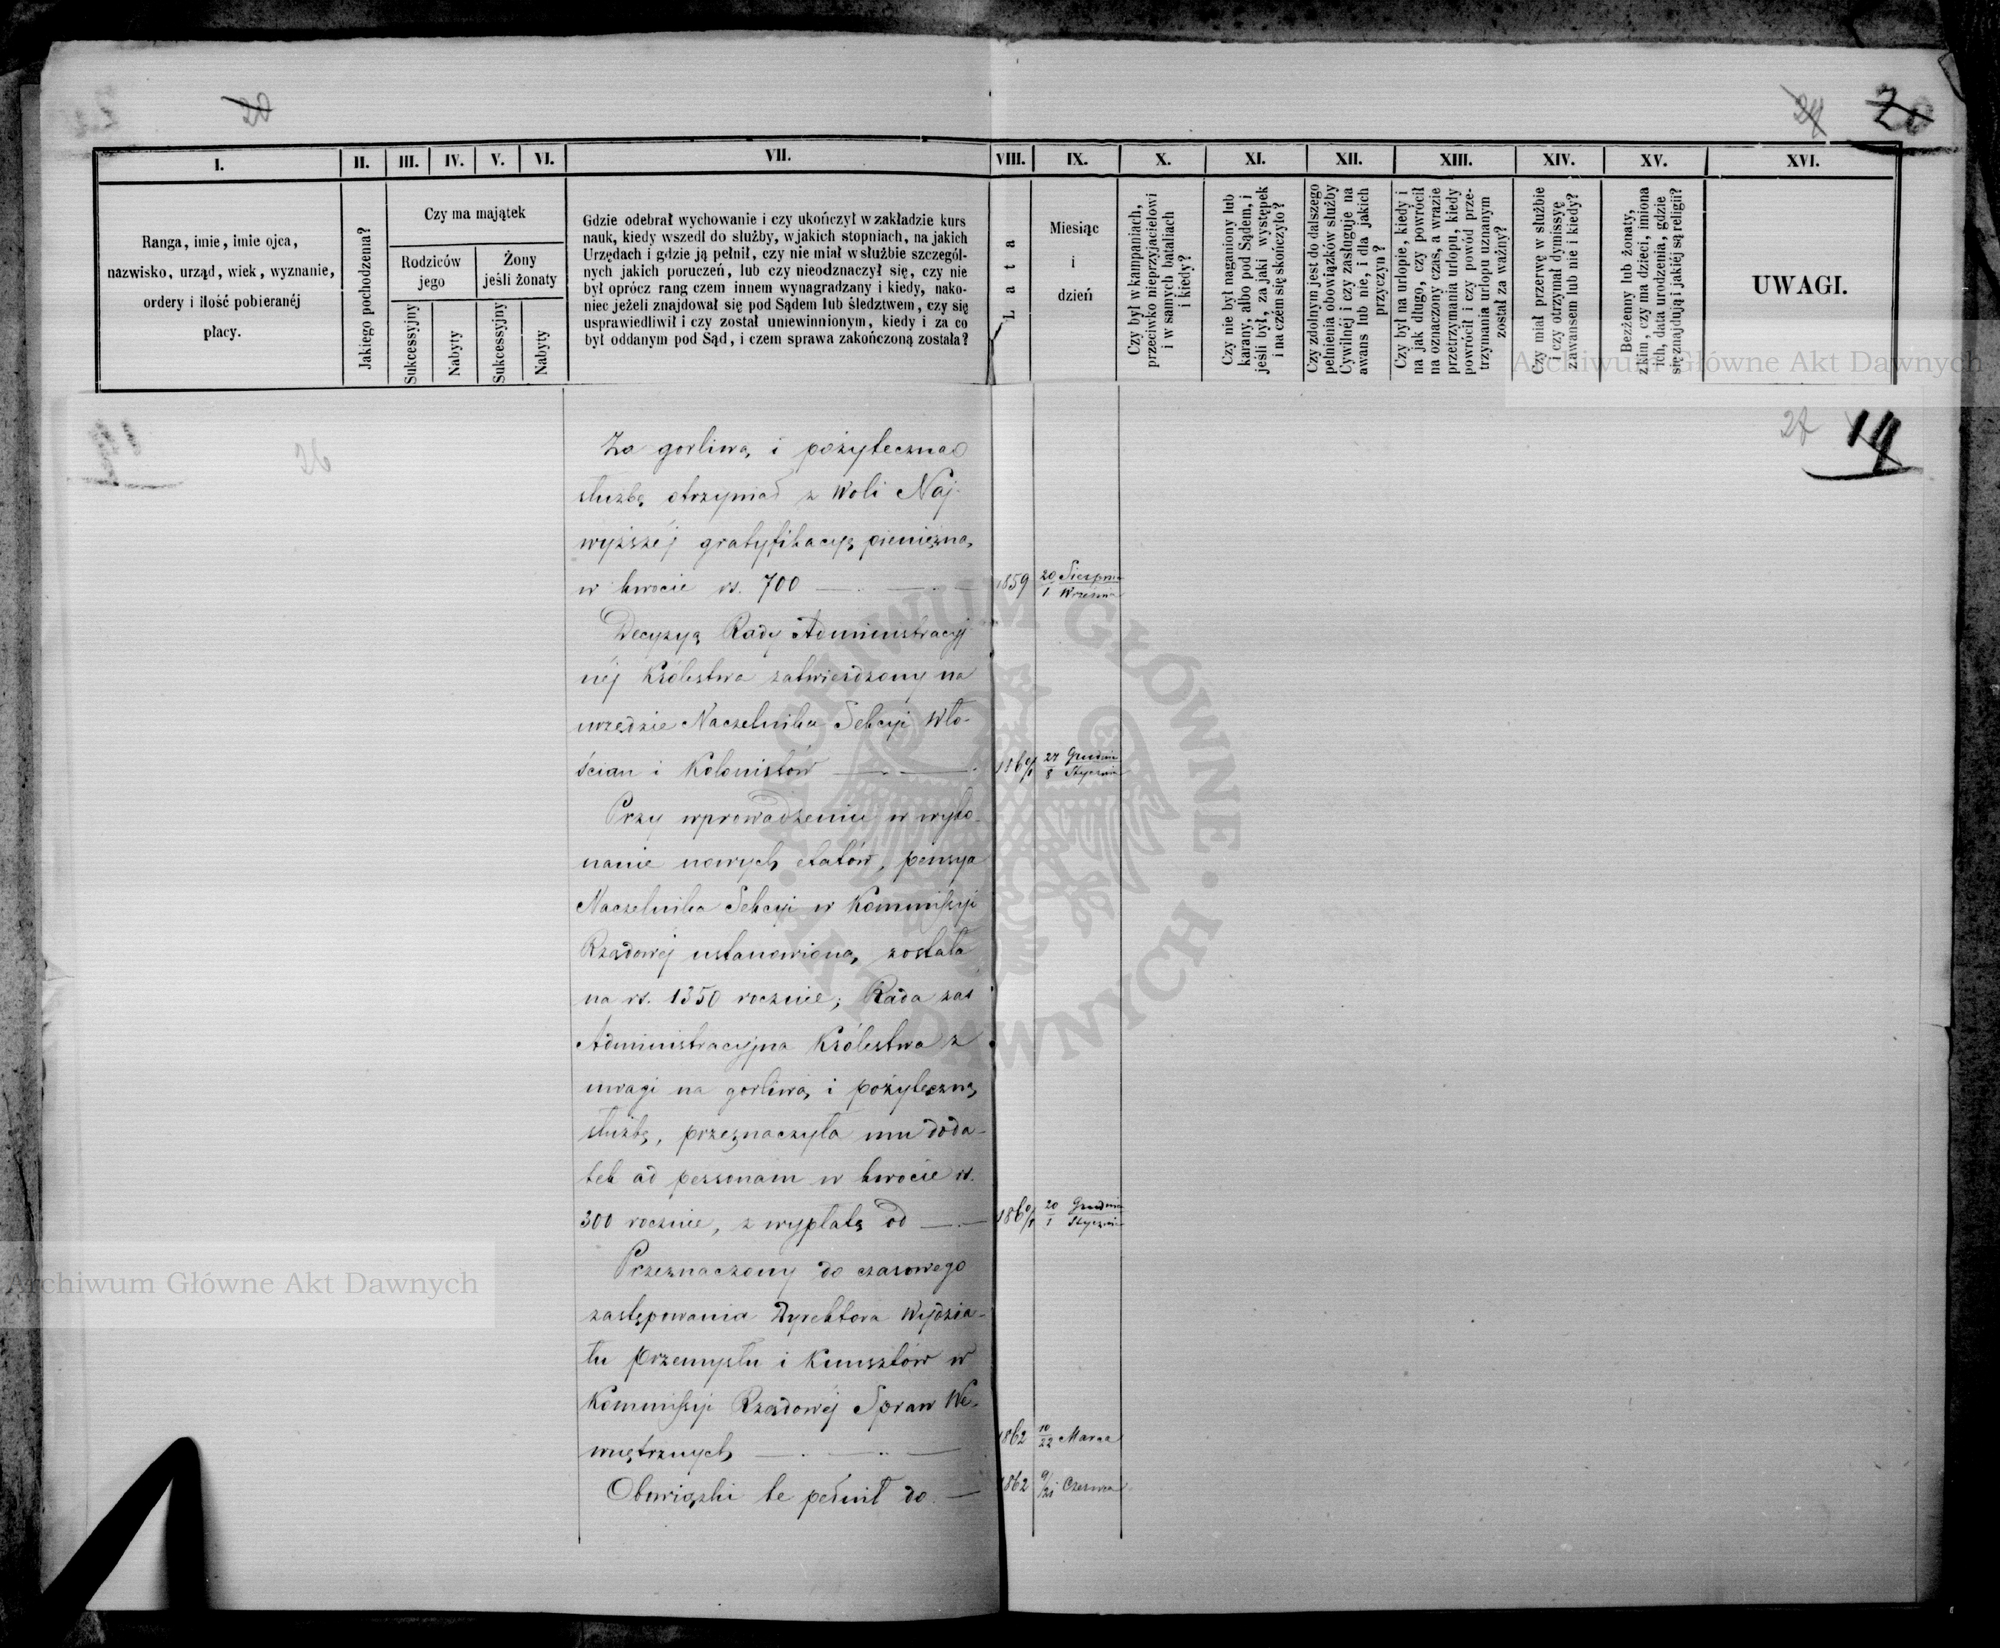 20
24
I.
II.
III.
IV.
V.
VI.
VII.
VIII.
IX.
X.
XI.
XII.
XIII.
XIV.
XV.
XVI.
Ranga, imie, imie ojca,
nazwisko, urząd, wiek, wyznanie,
ordery i ilość pobieranéj
płacy.
Jakiego pochodzenia?
Czy ma majątek
Rodziców
jego
Żony
jeśli żonaty
Sukcessyjny
Nabyty
Sukcessyjny
Nabyty
Gdzie odebrał wychowanie i czy ukończył w zakładzie kurs
nauk, kiedy wszedł do służby, w jakich stopniach, na jakich
Urzędach i gdzie ją pełnił, czy nie miał w służbie szczegól-
nych jakich poruczeń, lub czy nieodznaczył się, czy nie
był oprócz rang czem innem wynagradzany i kiedy, nako-
niec jeżeli znajdował się pod Sądem lub śledztwem, czy się
usprawiedliwił i czy został uniewinnionym, kiedy i za co
był oddanym pod Sąd, i czem sprawa zakończoną została?
Lata
Miesiąc
i
dzień
Czy był w kampaniach,
przeciwko nieprzyjacielowi
i w samych bataliach
i kiedy?
Czy nie był naganiony lub
karany, albo pod Sądem, i
jeśli był, za jaki występek
i na czém się skończyło?
Czy zdolnym jest do dalszego
pełnienia obowiązków służby
Cywilnéj i czy zasługuje na
awans lub nie, i dla jakich
przyczyn?
Czy był na urlopie, kiedy i
na jak długo, czy powrócił
na oznaczony czas, a wrazie
przetrzymania urlopu, kiedy
powrócił i czy powód prze-
trzymania urlopu uznanym
został za ważny?
Czy miał przerwę w służbie
i czy otrzymał dymissyę
z awansem lub nie i kiedy?
Bezżenny lub żonaty,
z kim, czy ma dzieci, imiona
ich, data urodzenia, gdzie
się znajdują i jakiéj są religii?
UWAGI.
Archiwum Główne Akt Dawnych
26
27
Za gorliwą i pożyteczną
służbę otrzymał z Woli Naj-
wyższéj gratyfikacyę pieniężną,
w kwocie rs. 700 1859 20/1 Sierpnia/Września
Decyzyą Rady Administracyj
néj Królestwa zatwierdzony na
urzędzie Naczelnika Sekcyi Wło-
ścian i Kolonistów 1860/1 27/8 Grudnia/Stycznia
Przy wprowadzeniu w wyko-
nanie nowych etatów, pensya
Naczelnika Sekcyi w Kommissyi
Rządowéj ustanowioną, została
na rs. 1350 rocznie; Rada zaś
Administracyjna Królestwa z
uwagi na gorliwą i pożyteczną,
służbę, przeznaczyła mu doda-
tek ad personam w kwocie rs.
300 rocznie, z wypłatą od 1860/1 20/1 Grudnia/Stycznia
Przeznaczony do czasowego
zastępowania Dyrektora Wydzia-
łu Przemysłu i Kunsztów w
Kommissyi Rządowéj Spraw We-
wnętrznych 1862 10/22 Marca
Obowiązki te pełnił do 1862 9/21 Czerwca
ARCHIWUM GŁÓWNE AKT DAWNYCH
Archiwum Główne Akt Dawnych